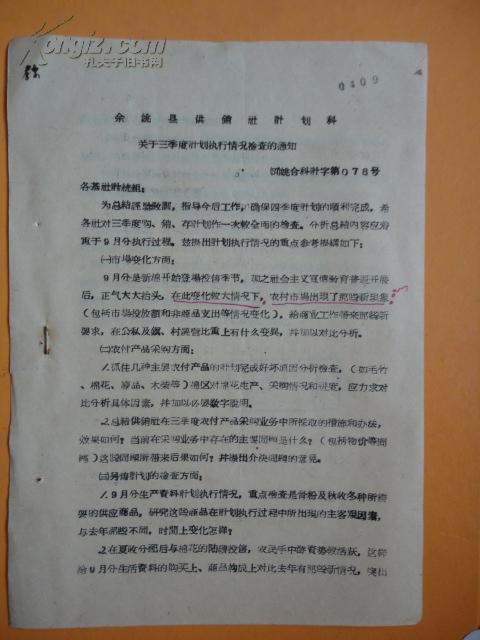 Kongfz.com
孔夫子旧书网
0409
余姚县供销社计划科
关于三季度计划执行情况检查的通知
(57)姚合科计字第078号
各基社计统组:
为总结经验教训,指导今后工作,确保四季度计划的顺利完成,希
各社对三季度购、销、存计划作一次较全面的检查。分析总结内容应着
重于9月分执行过程。兹提出计划执行情况的重点参考提纲如下:
㈠市场变化方面:
9月分是新棉开始登场投售季节,加之社会主义宣传教育普遍开展
后,正气大大抬头,在此变化较大情况下,农村市场出现了那些新气象
(包括市场投放额和非商品支出等情况变化),给商业工作带来那些新
要求,在公私及旗、村经营比重上有什么变异,并加以对比分析。
㈡农付产品采购方面:
1.抓住几种主要农付产品的计划完成好坏原因分析检查,(如毛竹
、棉花、废品、木柴等)棉区对棉花生产、采购情况和进度,应力求对
比分析具体因素,并加以必要数字说明。
2.总结供销社在三季度农付产品采购业务中所采取的措施和办法,
效果如何?当前在采购业务中存在的主要问题是什么?(包括物价等问
题)这些问题所带来后果如何?并提出介决问题的意见。
㈢另售计划的检查方面:
1.9月分生产资料计划执行情况,重点检查是骨粉及秋收冬种所需
要的供应商品,研究这些商品在计划执行过程中所出现的主客观因素,
与去年那些不同,时间上变化怎样?
2.在夏收分配后与棉花的陆续投售,农民手中货币势较活跃,这样
给9月分生活资料的购买上、商品构成上对比去年有那些新情况,突出